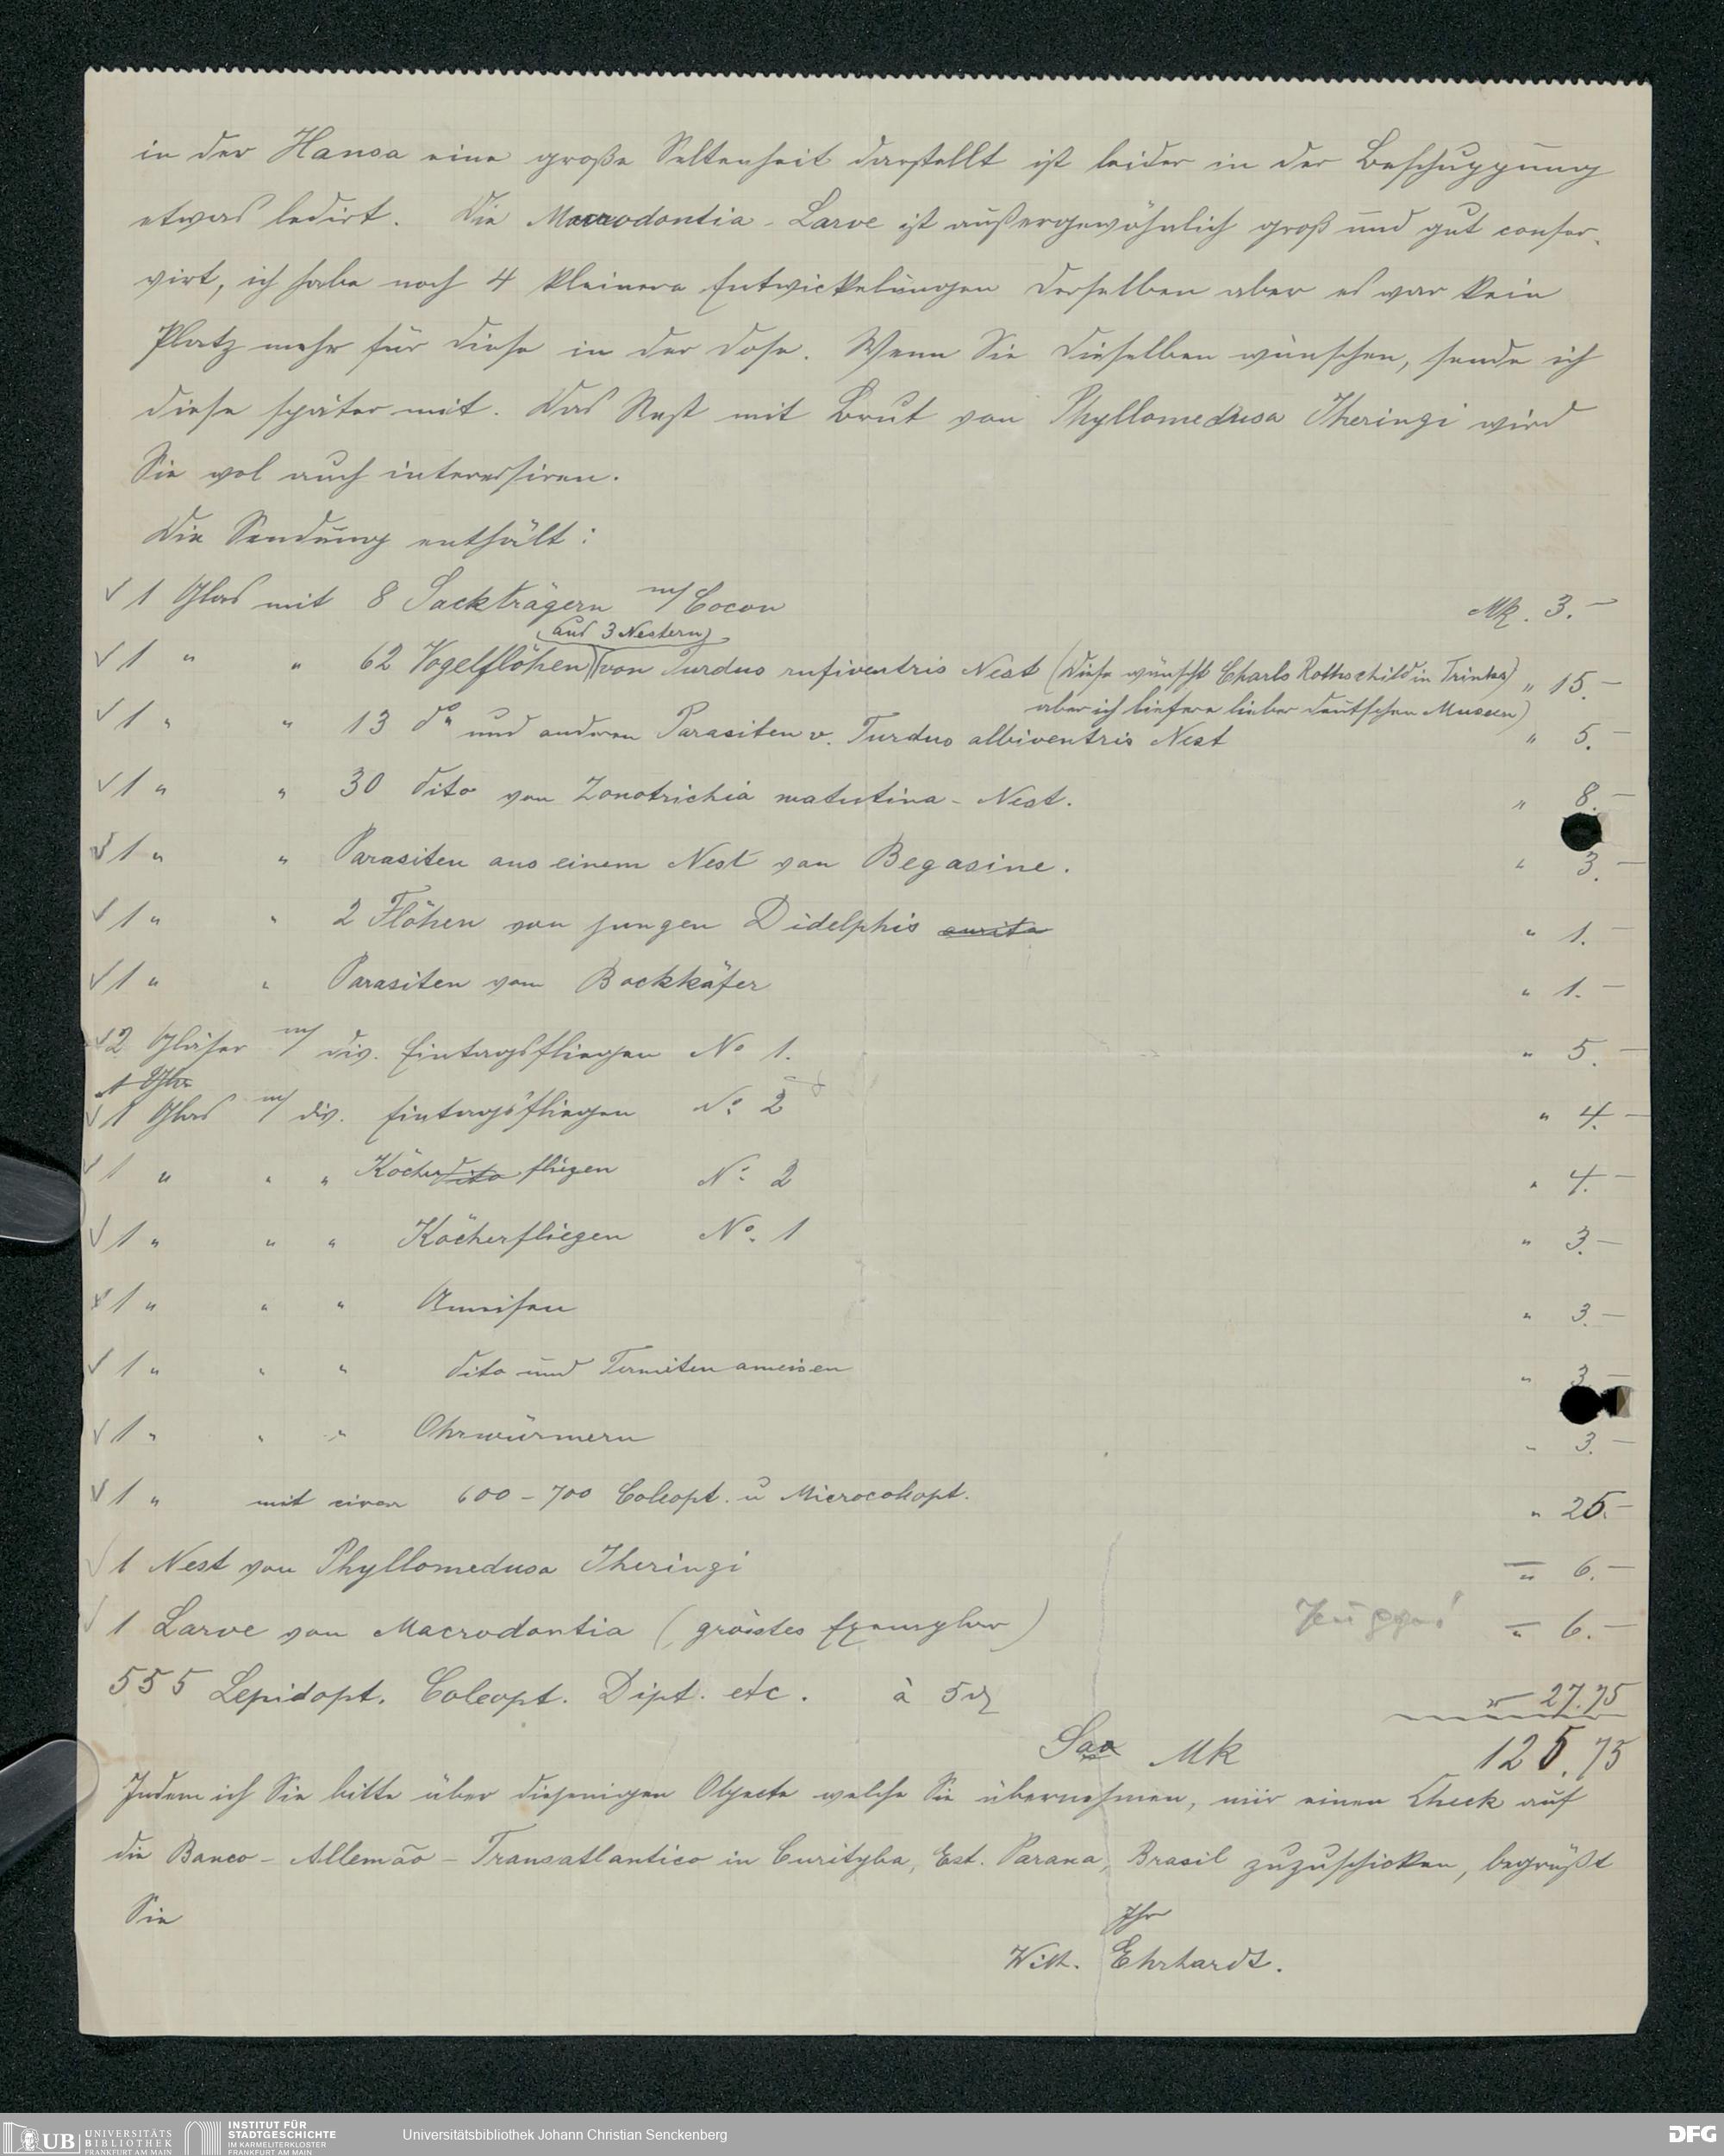 in der Hansa eine große Seltenheit darstellt ist leider in der Beschuppung
etwas ledirt. Die Macrodontia-Larve ist außergewöhnlich groß und gut conser-
virt, ich habe noch 4 kleinere Entwickelungen derselben aber es war kein
Platz mehr für diese in der Dose. Wenn Sie dieselben wünschen, sende ich
diese später mit. Das Nest mit Brut von Phyllomedusa Iheringi wird
Sie wol auch interessiren.
Die Sendung enthält:
√ 1 Glas mit 8 Sackträgern m/ Cocon Mk. 3.—
(aus 3 Nestern)
√ 1 " " 62 Vogelflöhen von Turdus rufiventris Nest (Diese wünscht Charls Rothschild in Trinks) " 15.—
aber ich liefere lieber deutschen Museen)
√ 1 " " 13 do und anderen Parasiten v. Turdus albiventris Nest " 5.—
√ 1 " " 30 dito von Zonotrichia matutina-Nest. " 8.—
√ 1 " " Parasiten aus einem Nest von Begasine. " 3.—
√ 1 " " 2 Flöhen von jungen Didelphis aurita " 1.—
√ 1 " " Parasiten vom Bockkäfer " 1.—
√ 2 Gläser m/ div. Eintagsfliegen No 1. " 5.—
1 Glas
√ 1 Glas m/ div. Eintagsfliegen No 2 " 4.—
√ 1 " " " Köcher dito fliegen No 2 " 4.—
√ 1 " " " Köcherfliegen No. 1 " 3.—
√ 1 " " " Ameisen " 3.—
√ 1 " " " dito und Termiten ameisen " 3.—
√ 1 " " " Ohrwürmern " 3.—
√ 1 " mit circa 600-700 Coleopt. u Microcoleopt. " 25.—
√ 1 Nest von Phyllomedusa Iheringi " 6.—
√ 1 Larve von Macrodontia (gröstes Exemplar) " 6.—
555 Lepidopt. Coleopt. Dipt. etc. à 5 ₰ " 27.75
Sa Mk 125.75
Indem ich Sie bitte über diejenigen Objecte welche Sie übernehmen, mir einen Check auf
die Banco-Allemão-Transatlantico in Curityba, Est. Parana, Brasil zuzuschicken, begrüßt
Sie Ihr
Wilh. Ehrhardt.
UB UNIVERSITÄTS
BIBLIOTHEK
FRANKFURT AM MAIN
INSTITUT FÜR
STADTGESCHICHTE
IM KARMELITERKLOSTER
FRANKFURT AM MAIN
Universitätsbibliothek Johann Christian Senckenberg
DFG